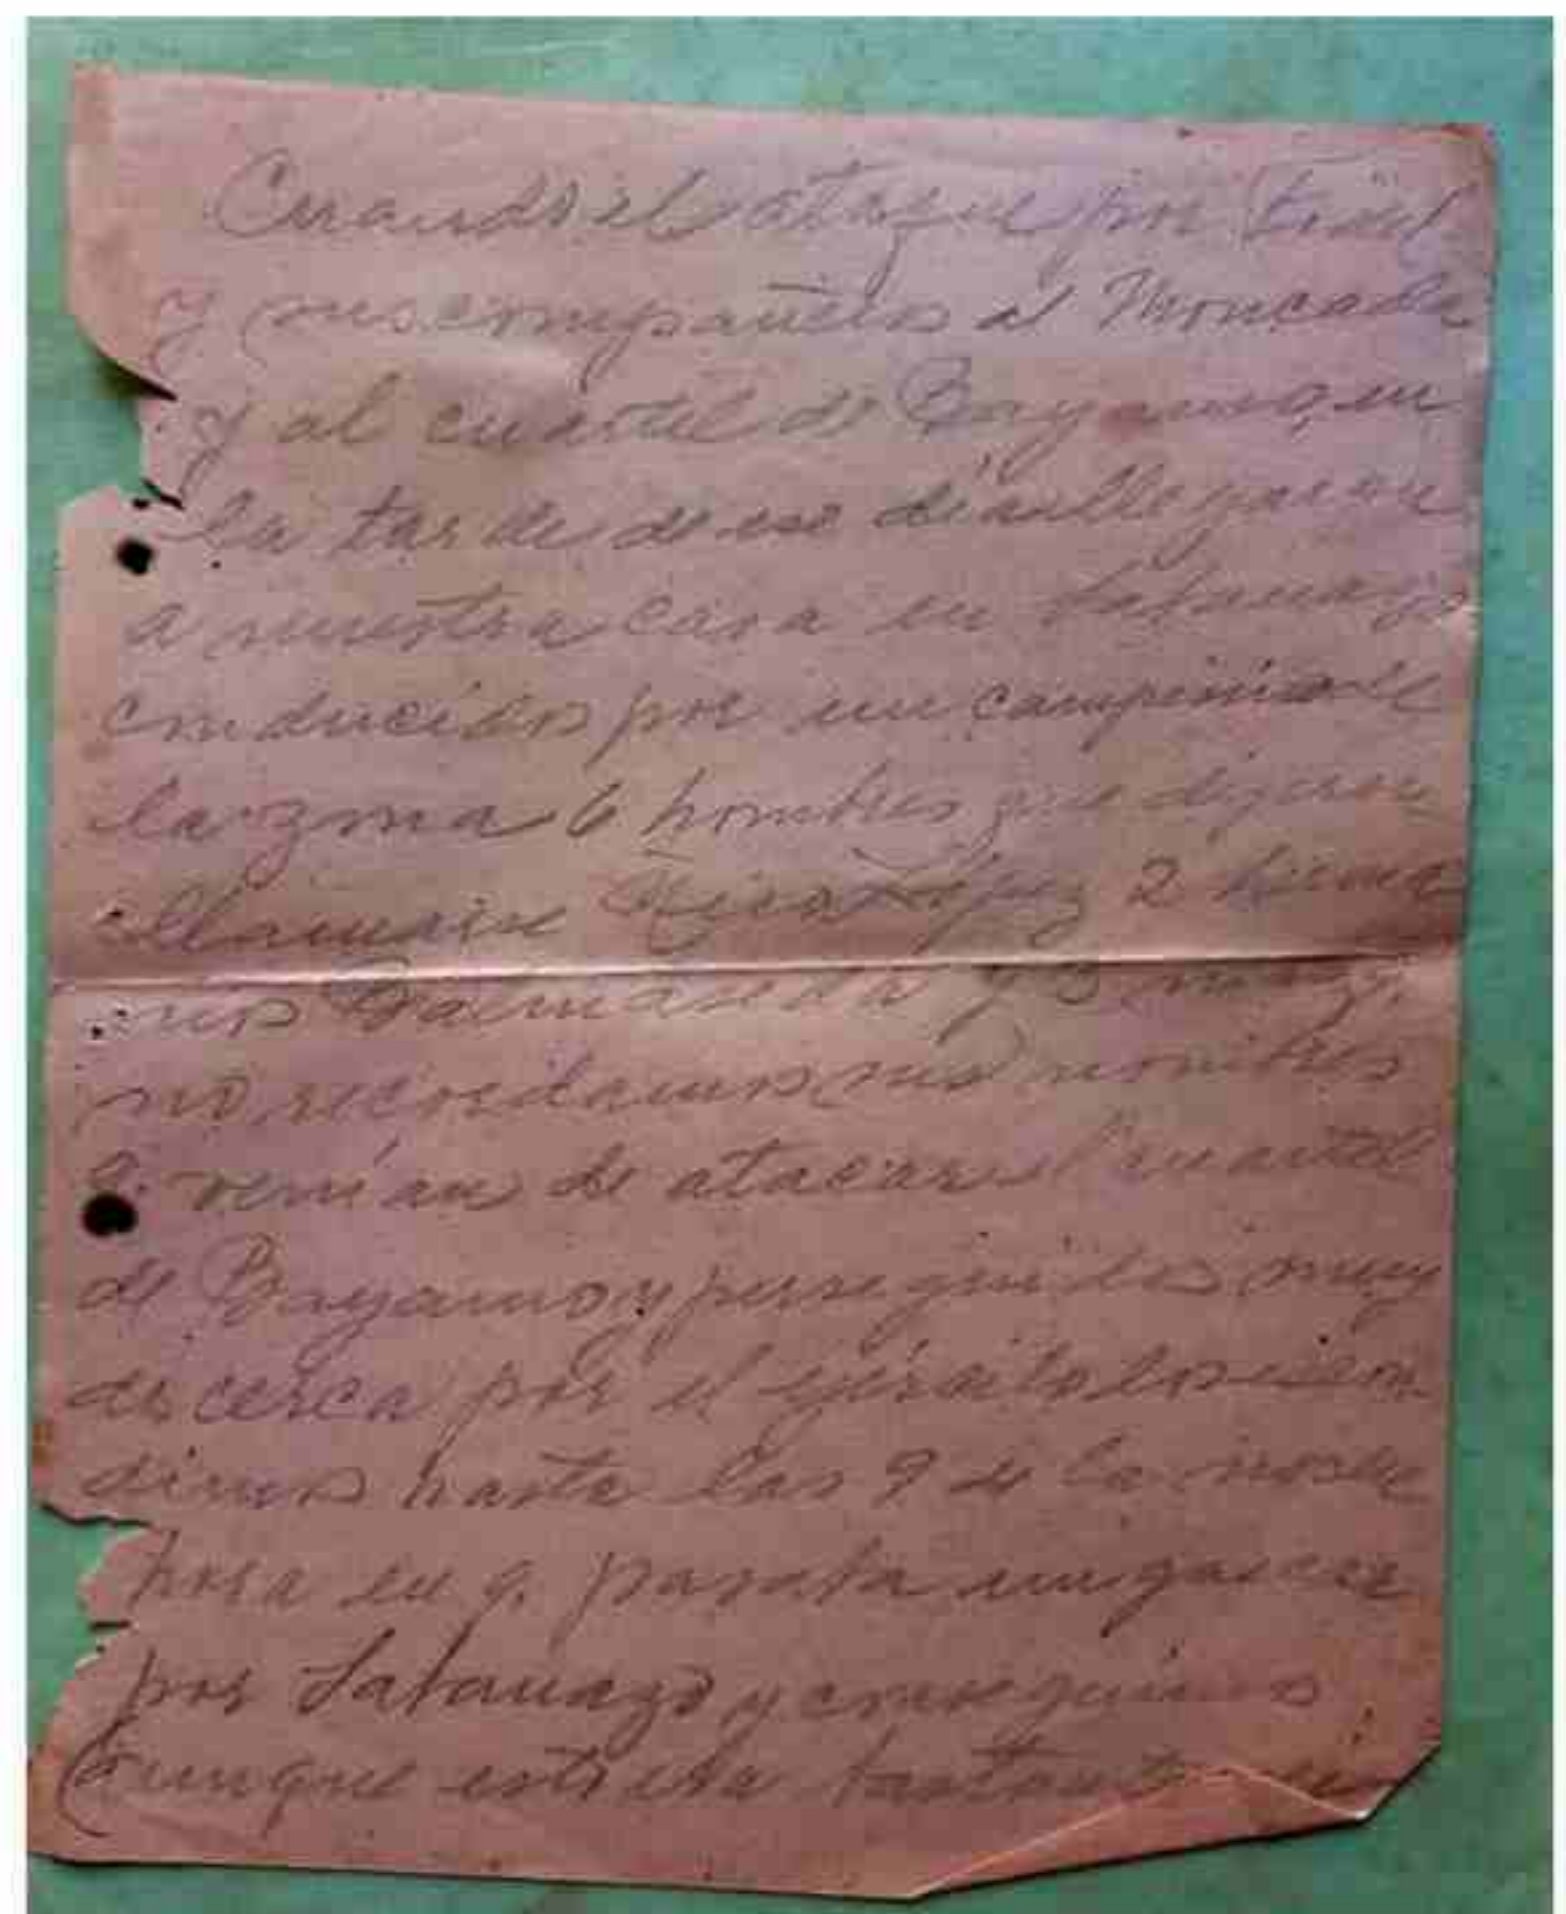 Cuando el ataque por Fidel
y sus compañeros al Moncada
y al cuartel de Bayamo, en
la tarde de ese día llegaron
a nuestra casa en
conducidos por un campesino de
la zona 6 hombres que dijeron
llamarse López 2 herma
nos y 3 mas q.
no recordamos sus nombres
q. venían de atacar el cuartel
de Bayamo y perseguidos muy
de cerca por el ejército los escon
dimos hasta las 9 de la noche
hora en q. pasaba
por y conseguimos
aunque estaba bastante